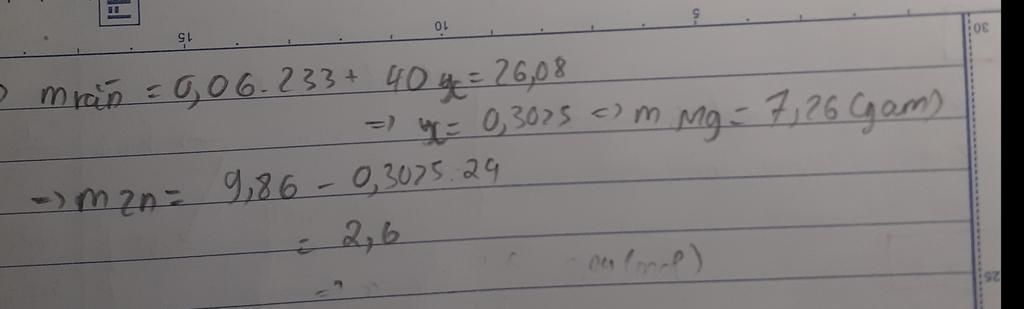 15 10 5 30
m rắn = 0,06. 233 + 40 x = 26,08
=> x = 0,3025 => m Mg = 7,26 (gam)
=> m Zn = 9,86 - 0,3025. 24
= 2,6
=>
25